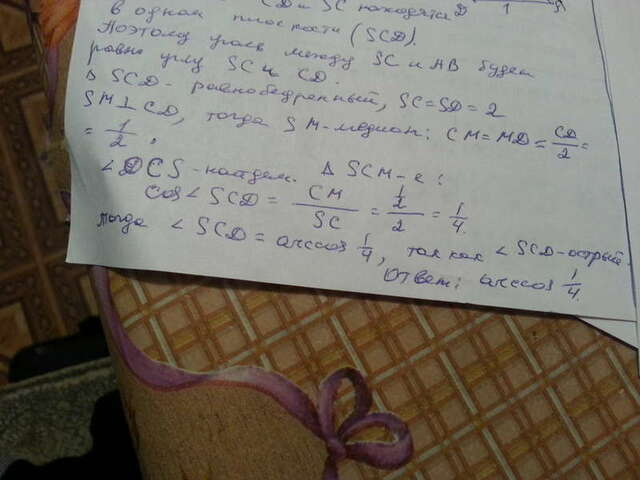 CD и SC находятся D 1
в одной плоскости (SCD).
Поэтому угол между SC и AB будет
равно углу SC и CD.
Δ SCD - равнобедренный, SC=SD=2
SM⊥CD, тогда SM-медиан: CM=MD=CD/2=
=1/2,
∠DCS-найдем. Δ SCM-е:
Cos∠SCD = CM/SC = 1/2/2 = 1/4.
тогда ∠SCD = arccos 1/4, так как ∠SCD-острый.
Ответ: arccos 1/4.